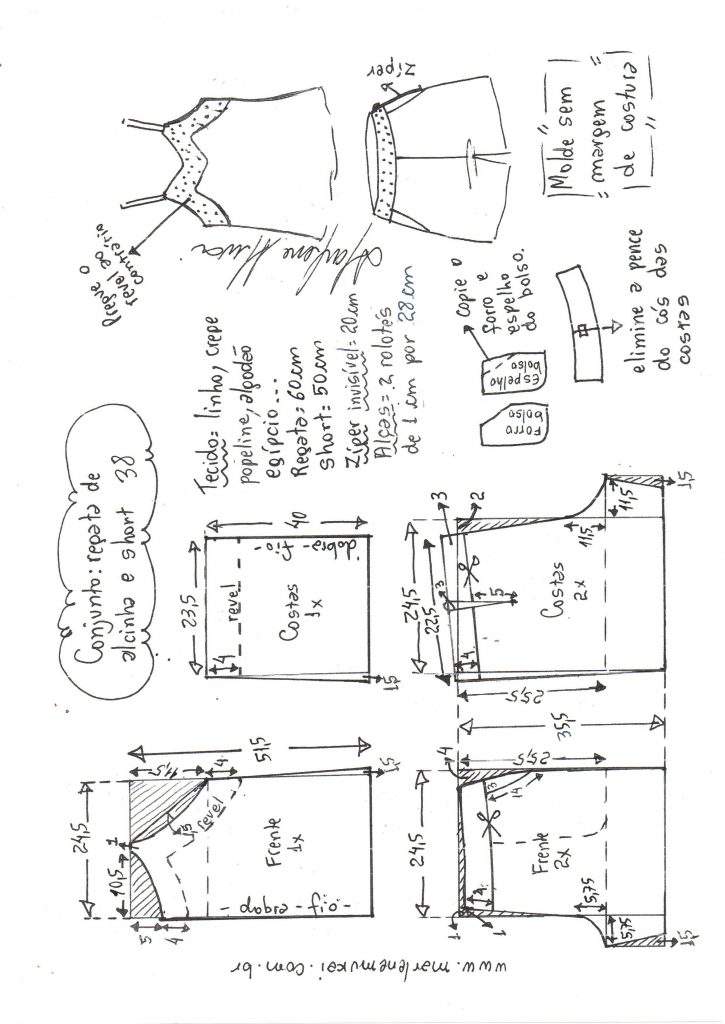 Conjunto: regata de
alcinha e short 38
Pregue o
revel ao
contrário
Zíper
"
Molde sem
= margem =
de costura
"
Tecido= linho, crepe
popeline, algodão
egípcio...
Regata= 60cm
short= 50cm
Zíper invisível= 20cm
Alças= 2 rolotês
de 1 cm por 28cm
Marlene Mukai
copie o
forro e
espelho
do bolso.
Espelho
bolso
Forro
bolso
elimine a pence
do cós das
costas
24,5
10,5
1
11,5
4
51,5
15
revel
5
4
Frente
1x
-dobra-fio-
1,5
23,5
4
revel
40
Costas
1x
dobra-fio-
1,5
24,5
4
25,5
35,5
3
14
4
1
1
Frente
2x
5,75
5,75
1,5
24,5
22,5
3
2
3
4
5
25,5
Costas
2x
11,5
11,5
1,5
www.marlenemukai.com.br